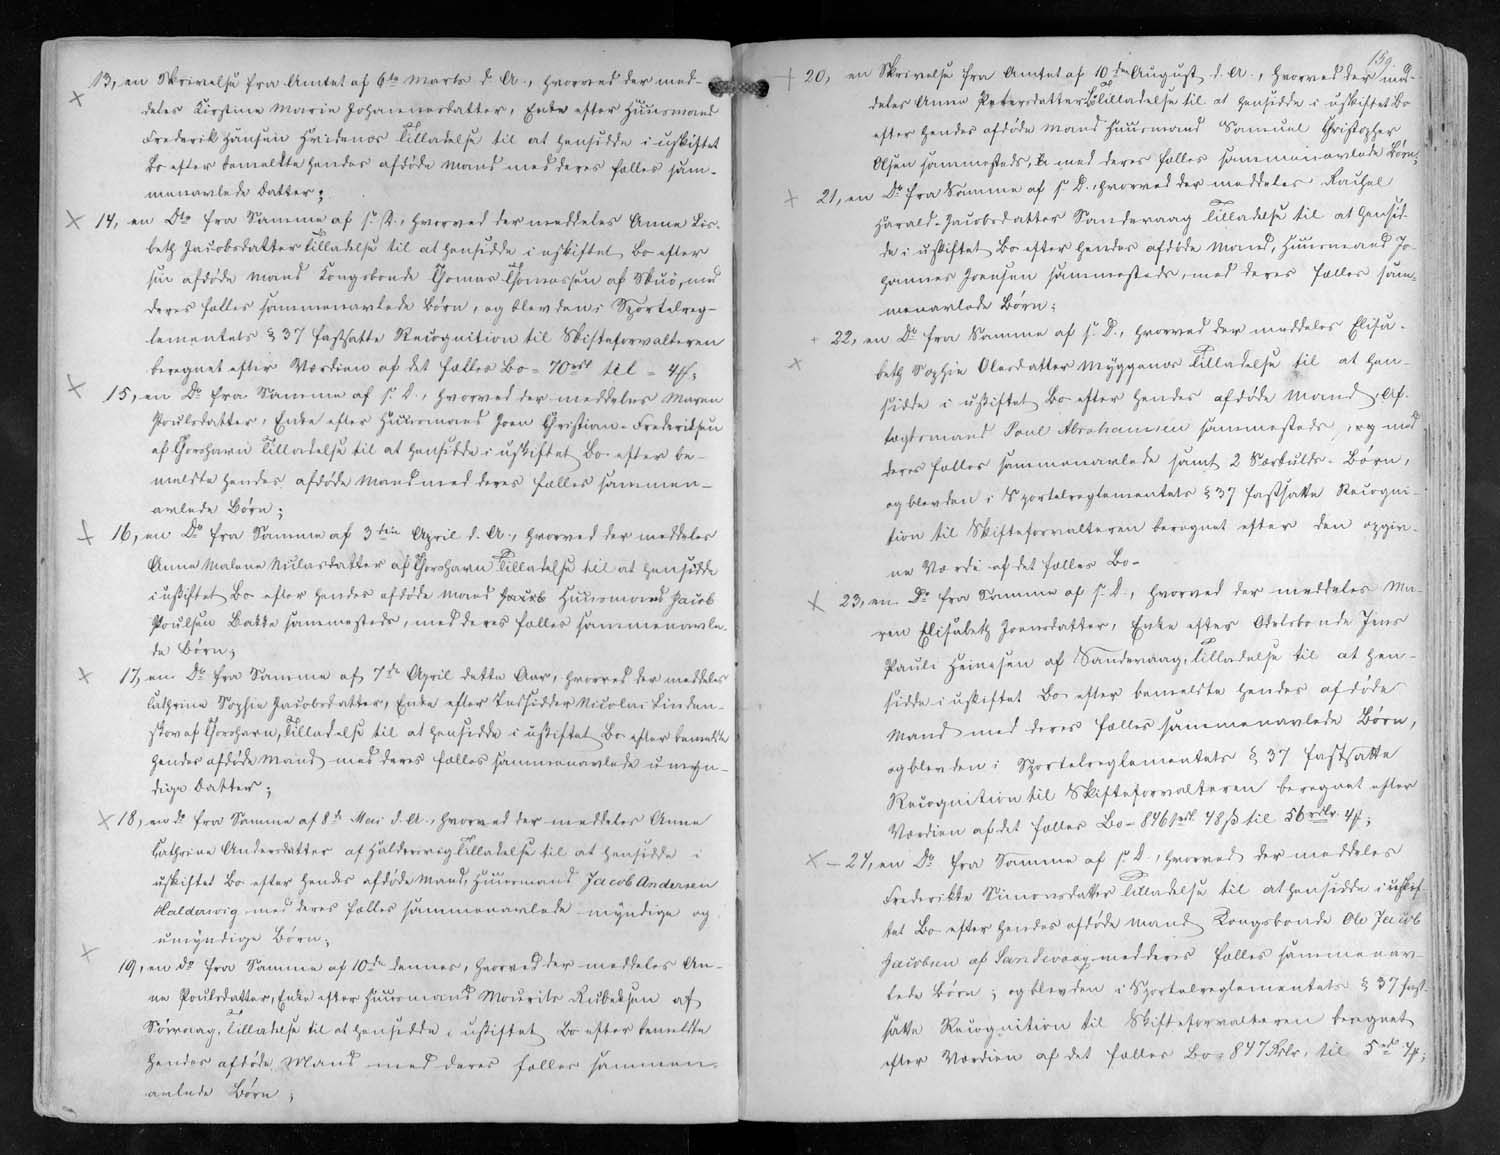 13, en Skrivelse fra Amtet af 6te Marts d. A., hvorved der med-
deles Kirstine Marie Johannesdatter, Enke efter Huusmand
Frederik Hansen Hvidenæs Tilladelse til at hensidde i uskiftet
Bo efter bemeldte hendes afdøde Mand med deres fælles sam-
menavlede Datter;
14, en Do fra Samme af s. D., hvorved der meddeles Anne Lis-
beth Jacobsdatter Tilladelse til at hensidde i uskiftet Bo efter
sin afdøde Mand Kongsbonde Thomas Thomassen af Skuø, med
deres fælles sammenavlede Børn, og blev den i Sportelreg-
lementets § 37 fastsatte Recognition til Skifteforvalteren
beregnet efter Værdien af det fælles Bo = 70 til = 4
15, en Do fra Samme af s. D., hvorved der meddeles Maren
Poulsdatter, Enke efter Huusmand Joen Christian Frederiksen
af Thorshavn Tilladelse til at hensidde i uskiftet Bo efter be-
meldte hendes afdøde Mand med deres fælles sammen-
avlede Børn;
16, en Do fra Samme af 3die April d. A., hvorved der meddeles
Anne Malene Niclasdatter af Thorshavn Tilladelse til at hensidde
i uskiftet Bo efter hendes afdøde Mand Huusmand Jacob
Poulsen Bakke sammesteds, med deres fælles sammenavle-
de Børn;
17, en Do fra Samme af 7de April dette Aar, hvorved der meddeles
Cathrine Sophie Jacobsdatter, Enke efter Indsidder Nicolai Linden-
skov af Thorshavn, Tilladelse til at hensidde i uskiftet Bo efter bemeldte
hendes afdøde Mand med deres fælles sammenavlede umyn-
dige Datter;
18, en do fra Samme af 8de Mai d. A., hvorved der meddeles Anne
Cathrine Andersdatter af Haldersvig Tilladelse til at hensidde i
uskiftet Bo efter hendes afdøde Mand, Huusmand Jacob Andersen
Haldersvig med deres fælles sammenavlede myndige og
umyndige Børn;
19, en do fra Samme af 10de dennes, hvorved der meddeles An-
ne Poulsdatter, Enke efter Huusmand Mourits Rubeksen af
Sørvaag, Tilladelse til at hensidde i uskiftet Bo efter bemeldte
hendes afdøde Mand med deres fælles sammen-
avlede Børn;
159.
20, en Skrivelse fra Amtet af 10de August d. A., hvorved der med-
deles Anne Petersdatter Tilladelse til at hensidde i uskiftet Bo
efter hendes afdøde Mand Huusmand Samuel Christopher
Olsen sammesteds, med deres fælles sammenavlede Børn;
21, en Do fra Samme af s. D., hvorved der meddeles Rachel
Harald-Jacobsdatter Sandevaag Tilladelse til at hensid-
de i uskiftet Bo efter hendes afdøde Mand, Huusmand Jo-
hannes Joensen sammesteds, med deres fælles sam-
menavlede Børn;
22, en Do fra Samme af s. D., hvorved der meddeles Elisa-
beth Sophie Olesdatter Myggenæs Tilladelse til at hen-
sidde i uskiftet Bo efter hendes afdøde Mand, Af-
tægtsmand Poul Abrahamsen sammesteds, og med
deres fælles sammenavlede samt 2 Særkulds-Børn,
og blev den i Sportelreglementets § 37 fastsatte Recogni-
tion til Skifteforvalteren beregnet efter den opgiv-
ne Værdi af det fælles Bo-
23, en Do fra Samme af s. D., hvorved der meddeles Ma-
ren Elisabeth Joensdatter, Enke efter Odelsbonde Jens
Pauli Heinesen af Sandevaag, Tilladelse til at hen-
sidde i uskiftet Bo efter bemeldte hendes afdøde
Mand med deres fælles sammenavlede Børn,
og blev den i Sportelreglementets § 37 fastsatte
Recognition til Skifteforvalteren beregnet efter
Værdien af det fælles Bo - 846 48 ß til 56
24, en Do fra Samme af s. D., hvorved der meddeles
Frederikke Simonsdatter Tilladelse til at hensidde i uskif-
tet Bo efter hendes afdøde Mand Kongsbonde Ole Jacob
Jacobsen af Sandevaag med deres fælles sammenav-
lede Børn; og blev den i Sportelreglementets § 37 fast-
satte Recognition til Skifteforvalteren beregnet
efter Værdien af det fælles Bo = 847 Rdlr. til 5